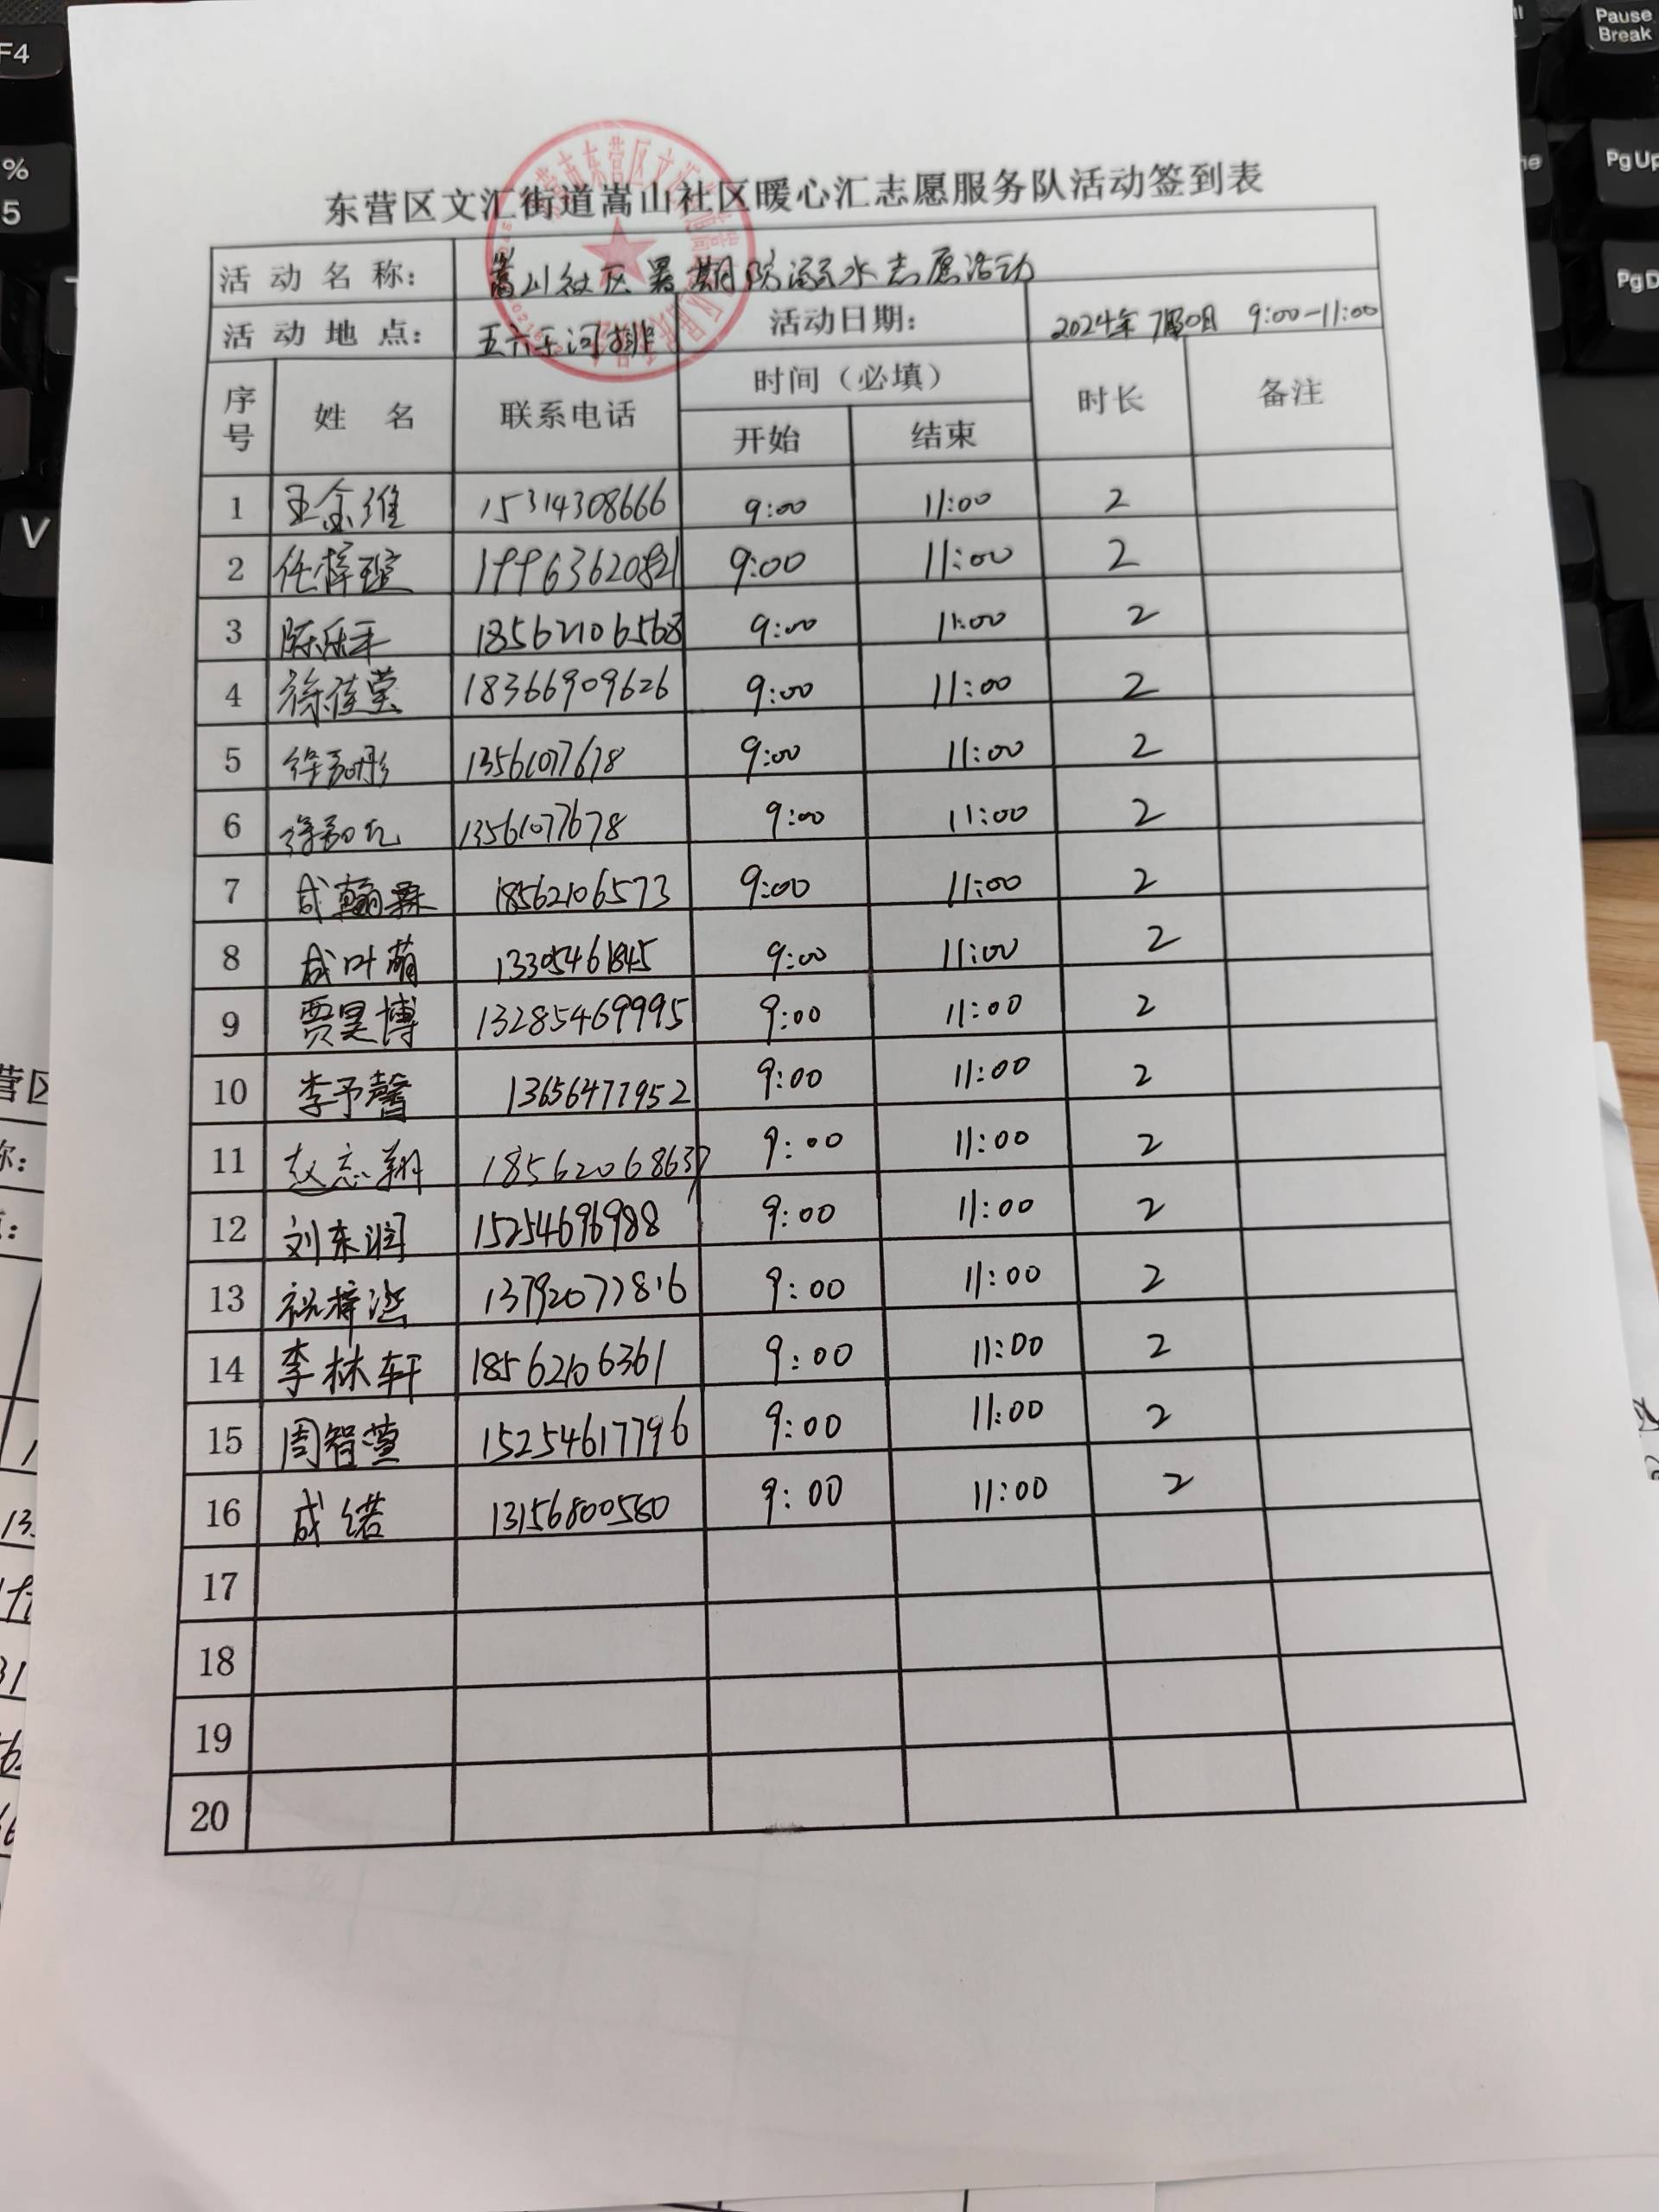 东营区文汇街道嵩山社区暖心汇志愿服务队活动签到表
活动名称： 嵩山社区暑期防溺水志愿活动
活动地点： 五六干河排 活动日期： 2024年 9:00-11:00
序号 姓名 联系电话 时间（必填） 时长 备注
开始 结束
1 王金维 15314308666 9:00 11:00 2
2 任梓瑄 19963620821 9:00 11:00 2
3 陈乐平 18562106568 9:00 11:00 2
4 徐佳莹 18366909626 9:00 11:00 2
5 13561077678 9:00 11:00 2
6 13561077678 9:00 11:00 2
7 成翰霖 18562106573 9:00 11:00 2
8 成叶萌 13305461845 9:00 11:00 2
9 贾昊博 13285469995 9:00 11:00 2
10 李予馨 13656477952 9:00 11:00 2
11 赵志翔 18562068637 9:00 11:00 2
12 刘东润 15254696988 9:00 11:00 2
13 祝梓涵 13792077816 9:00 11:00 2
14 李林轩 18562106361 9:00 11:00 2
15 周智萱 15254617796 9:00 11:00 2
16 成绪 13156800560 9:00 11:00 2
17
18
19
20
F4
%
5
V
Pause
Break
PgUp
PgD
营区